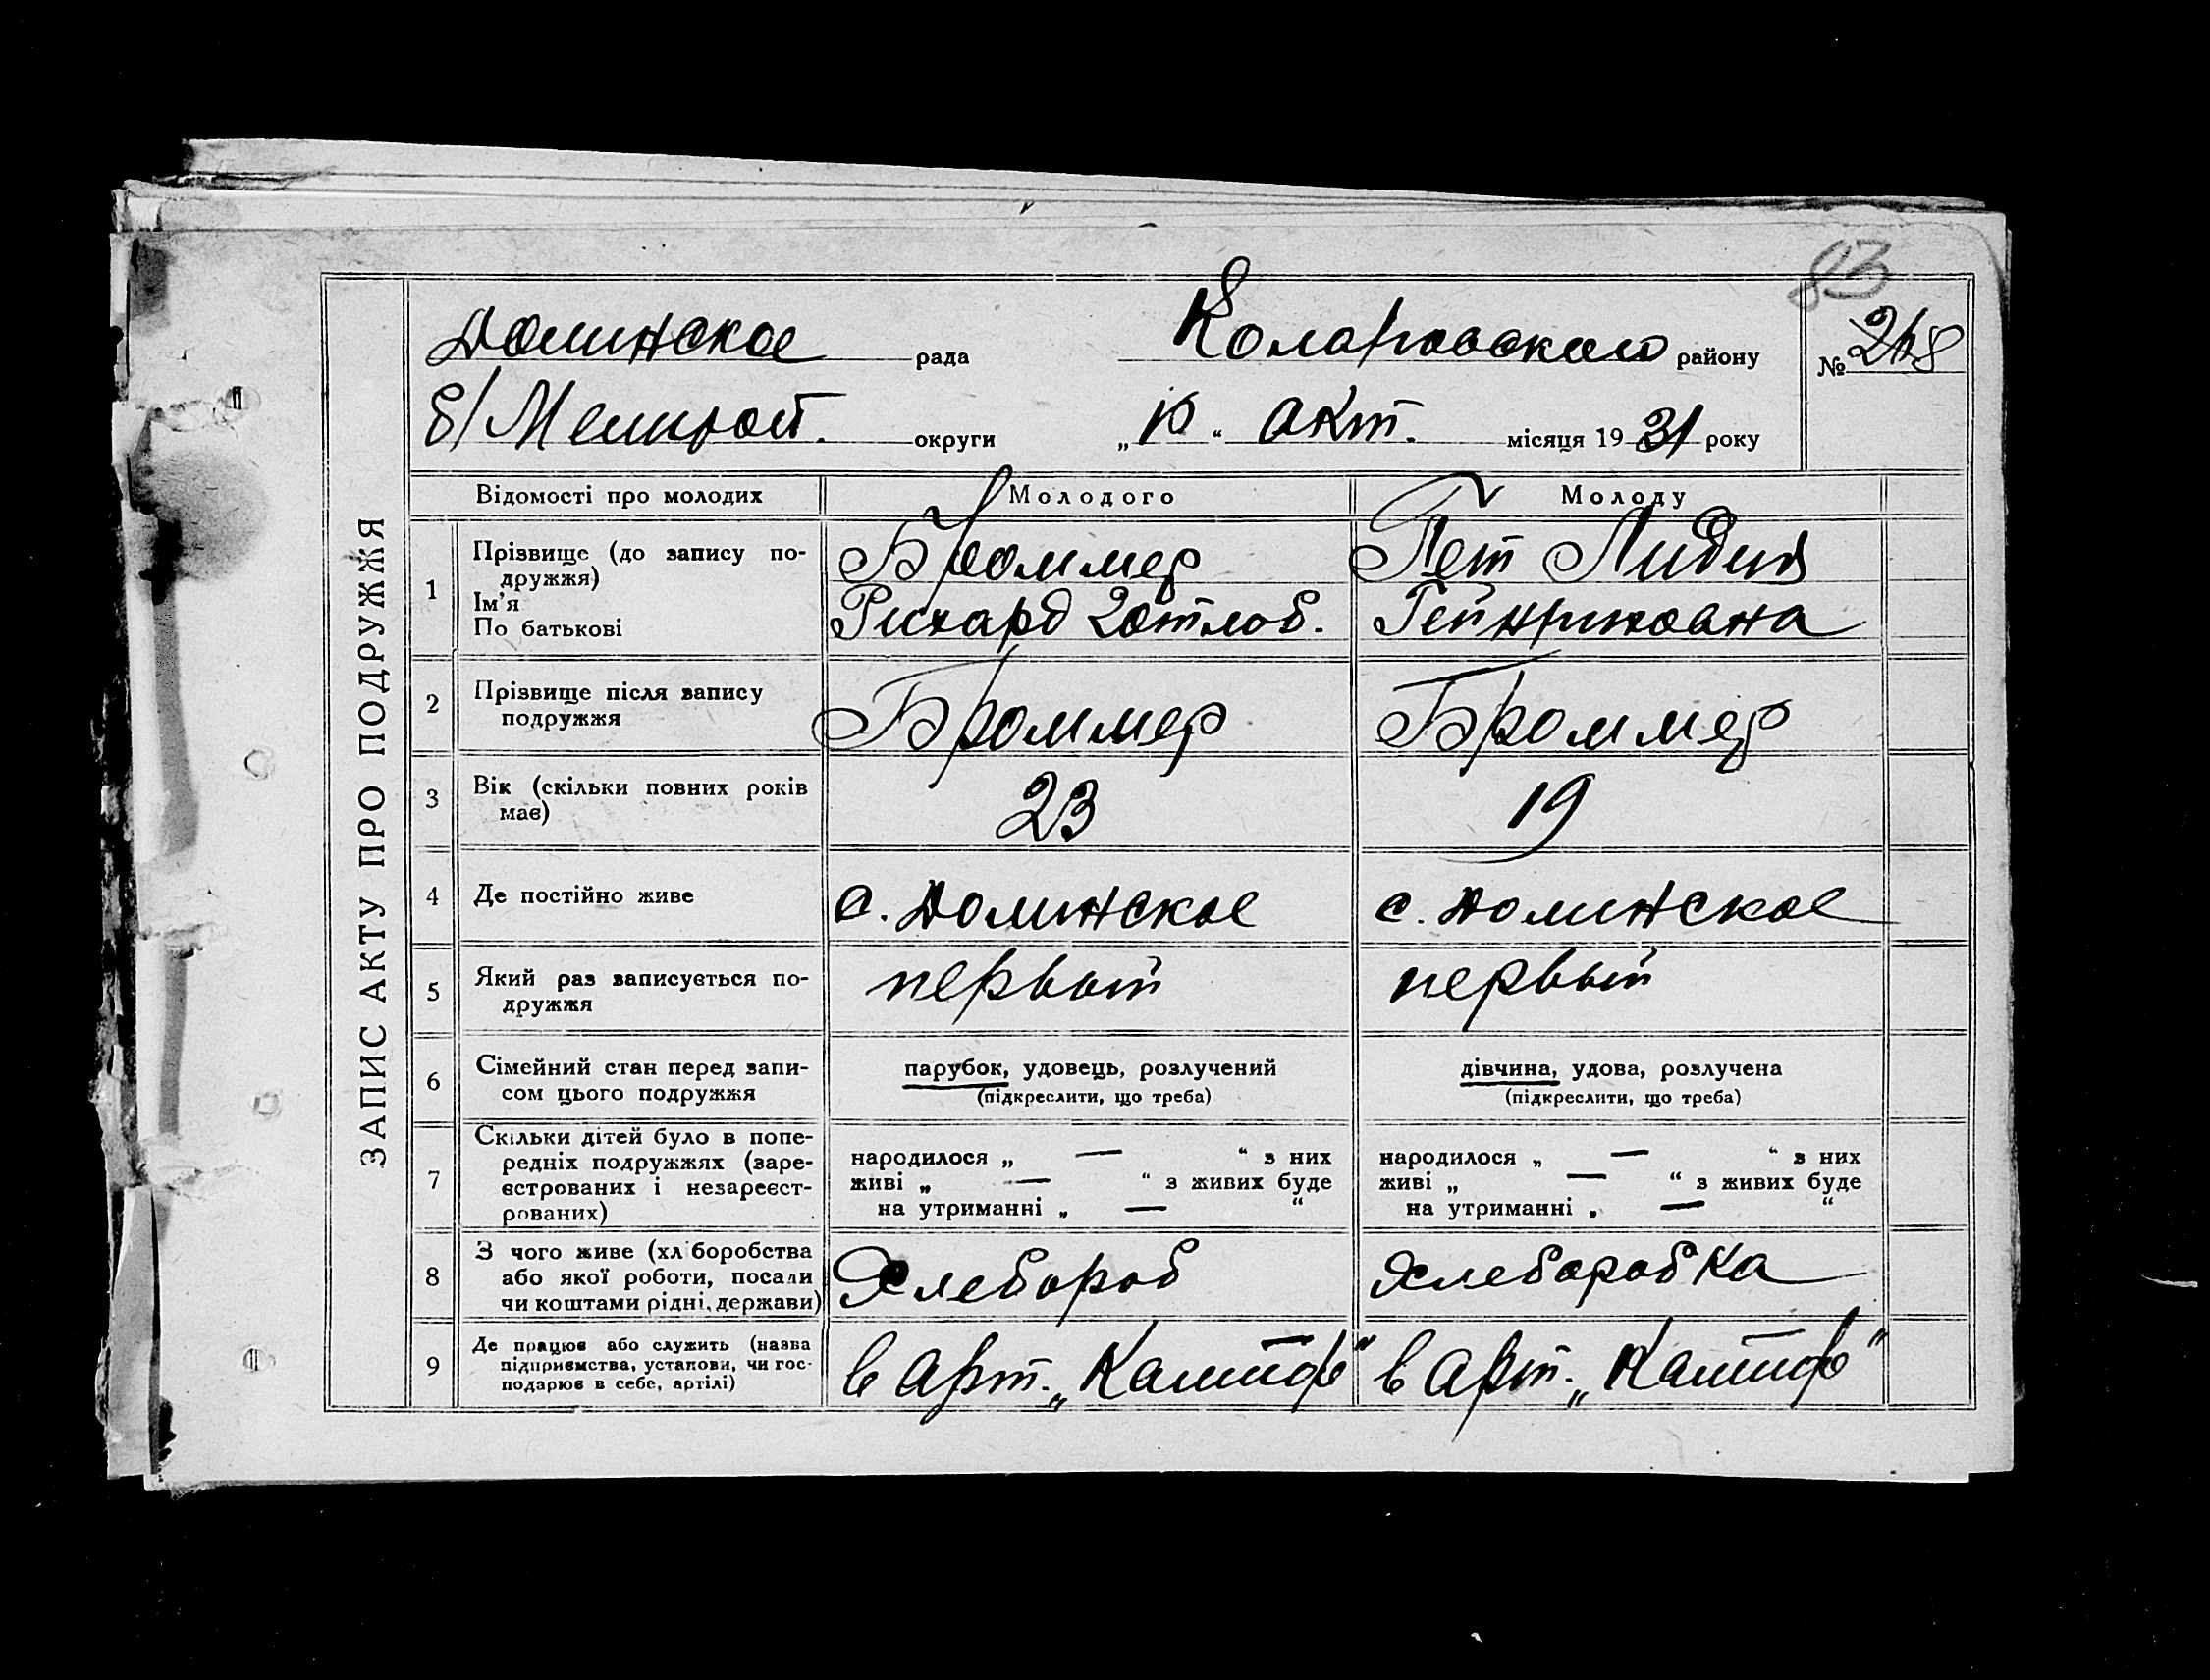 83
Долинское рада Коларовского району № 268
б/Мелитоп. округи „10“ окт. місяця 1931 року
ЗАПИС АКТУ ПРО ПОДРУЖЖЯ
Відомості про молодих Молодого Молоду
1 Прізвище (до запису по-
дружжя)
Ім'я
По батькові
Броммер
Рихард Готлоб.
Пет Лидия
Гейнриховна
2 Прізвище після запису
подружжя
Броммер
Броммер
3 Вік (скільки повних років
має)
23
19
4 Де постійно живе с. Долинское с. Долинское
5 Який раз записується по-
дружжя
первый
первый
6 Сімейний стан перед запи-
сом цього подружжя
парубок, удовець, розлучений
(підкреслити, що треба)
дівчина, удова, розлучена
(підкреслити, що треба)
7 Скільки дітей було в попе-
редніх подружжях (заре-
єстрованих і незареєст-
рованих)
народилося „ — “ з них
живі „ — “ з живих буде
на утриманні „ — “
народилося „ — “ з них
живі „ — “ з живих буде
на утриманні „ — “
8 З чого живе (хліборобства
або якої роботи, посади
чи коштами рідні, держави)
Хлебороб
Хлеборобка
9 Де працює або служить (назва
підприємства, установи, чи гос-
подарює в себе, артілі)
в Арт. „Кампф“
в Арт. „Кампф“